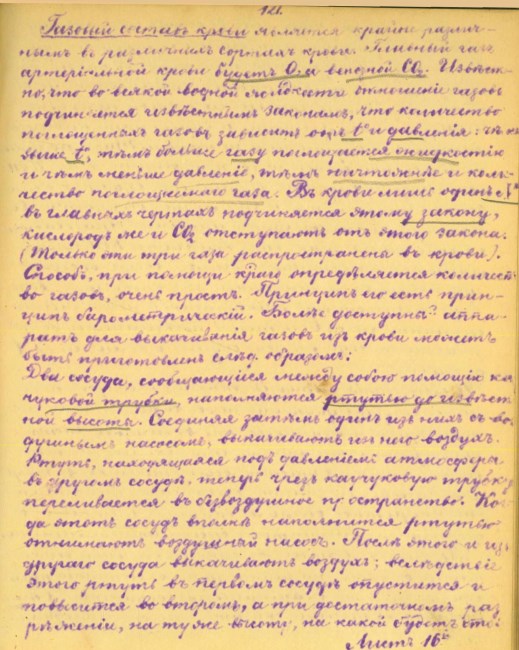 121.
Газовый составъ крови является крайне различ-
нымъ въ различныхъ сортахъ крови. Главный газъ
артеріальной крови будетъ O. а венозной CO₂. Извѣст-
но, что во всякой водной жидкости отношеніе газовъ
подчиняется извѣстнымъ законамъ, что количество
поглощенныхъ газовъ зависитъ отъ t° и давленія: чѣмъ
выше t°, тѣмъ больше газу поглощается жидкостію
и чѣмъ меньше давленіе, тѣмъ ничтожнѣе и коли-
чество поглощаемаго газа. Въ крови лишь одинъ N
въ главныхъ чертахъ подчиняется этому закону,
кислородъ же и CO₂ отступаютъ отъ этого закона.
(Только эти три газа распространены въ крови).
Способъ, при помощи краго опредѣляется количест-
во газовъ, очень простъ. Принципъ его есть прин-
ципъ барометрическій. Болѣе доступный аппа-
ратъ для выкачиванія газовъ изъ крови можетъ
быть приготовленъ слѣд. образомъ:
Два сосуда, сообщающіеся между собою помощію ка-
учуковой трубки, наполняются ртутью до извѣст-
ной высоты. Соединяя затѣмъ одинъ изъ нихъ съ воз-
душнымъ насосомъ, выкачиваютъ изъ него воздухъ.
Ртуть, находящаяся подъ давленіемъ атмосферы
въ другомъ сосудѣ, теперь чрезъ каучуковую трубку
переливается въ безвоздушное пространство. Ког-
да этотъ сосудъ вполнѣ наполнится ртутью
отнимаютъ воздушный насосъ. Послѣ этого и изъ
другаго сосуда выкачиваютъ воздухъ; вслѣдствіе
этого ртуть въ первомъ сосудѣ опустится и
повысится во второмъ, а при достаточномъ раз-
рѣженіи, на ту же высоту, на какой будетъ стоя
Листъ 16й